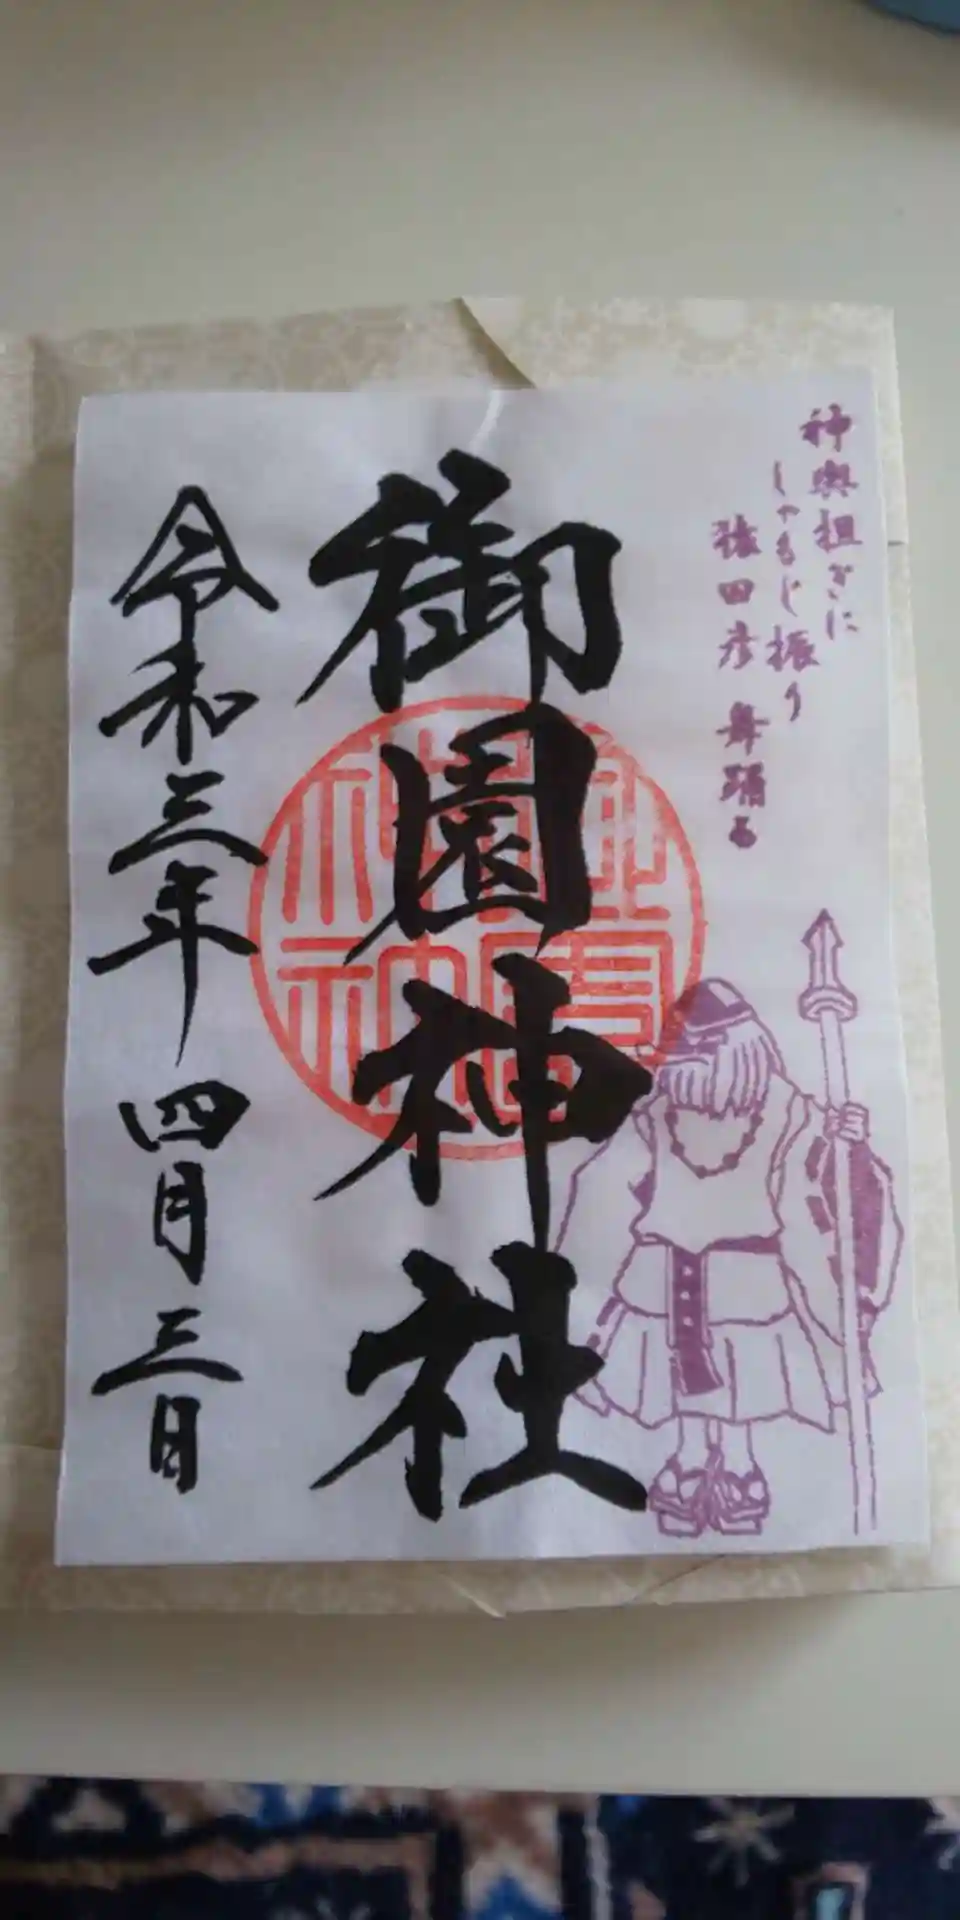 神輿担ぎに
しゃもじ振り
猿田彦舞踊る
御園神社
令和三年四月三日